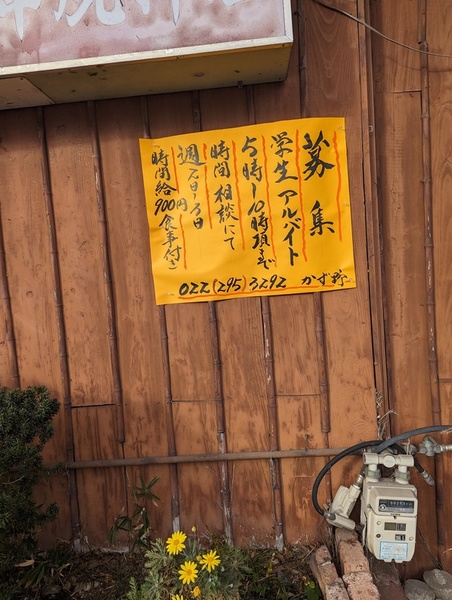 募集
学生アルバイト
5時〜10時頃まで
時間相談にて
週2日〜3日
時間給900円食事付き
022(295)3292 かず野